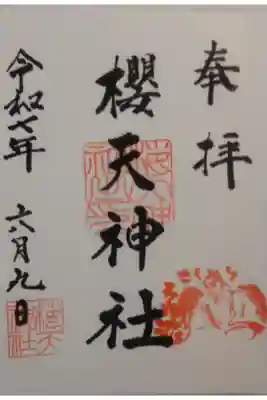 奉拝
櫻天神社
令和七年
六月九日